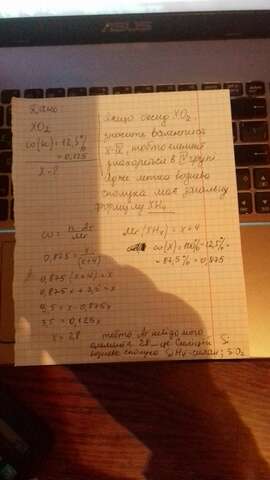 ASUS
Дано:
XO₂
ω(H) = 12,5%
= 0,125
X - ?
Якщо оксид XO₂,
значить валентність
X - IV, тобто елемент
знаходиться в IV групі
летка воднева
сполука має загальну
формулу XH₄
ω = n · Ar / Mr
Mr(XH₄) = x + 4
ω(X) = 100% - 12,5% =
= 87,5% = 0,875
0,875 = x / (x+4)
0,875(x+4) = x
0,875x + 3,5 = x
3,5 = x - 0,875x
3,5 = 0,125x
x = 28
тобто Ar невідомого
елемента 28 - це Силіцій Si
воднева сполука SiH₄ - силан; SiO₂